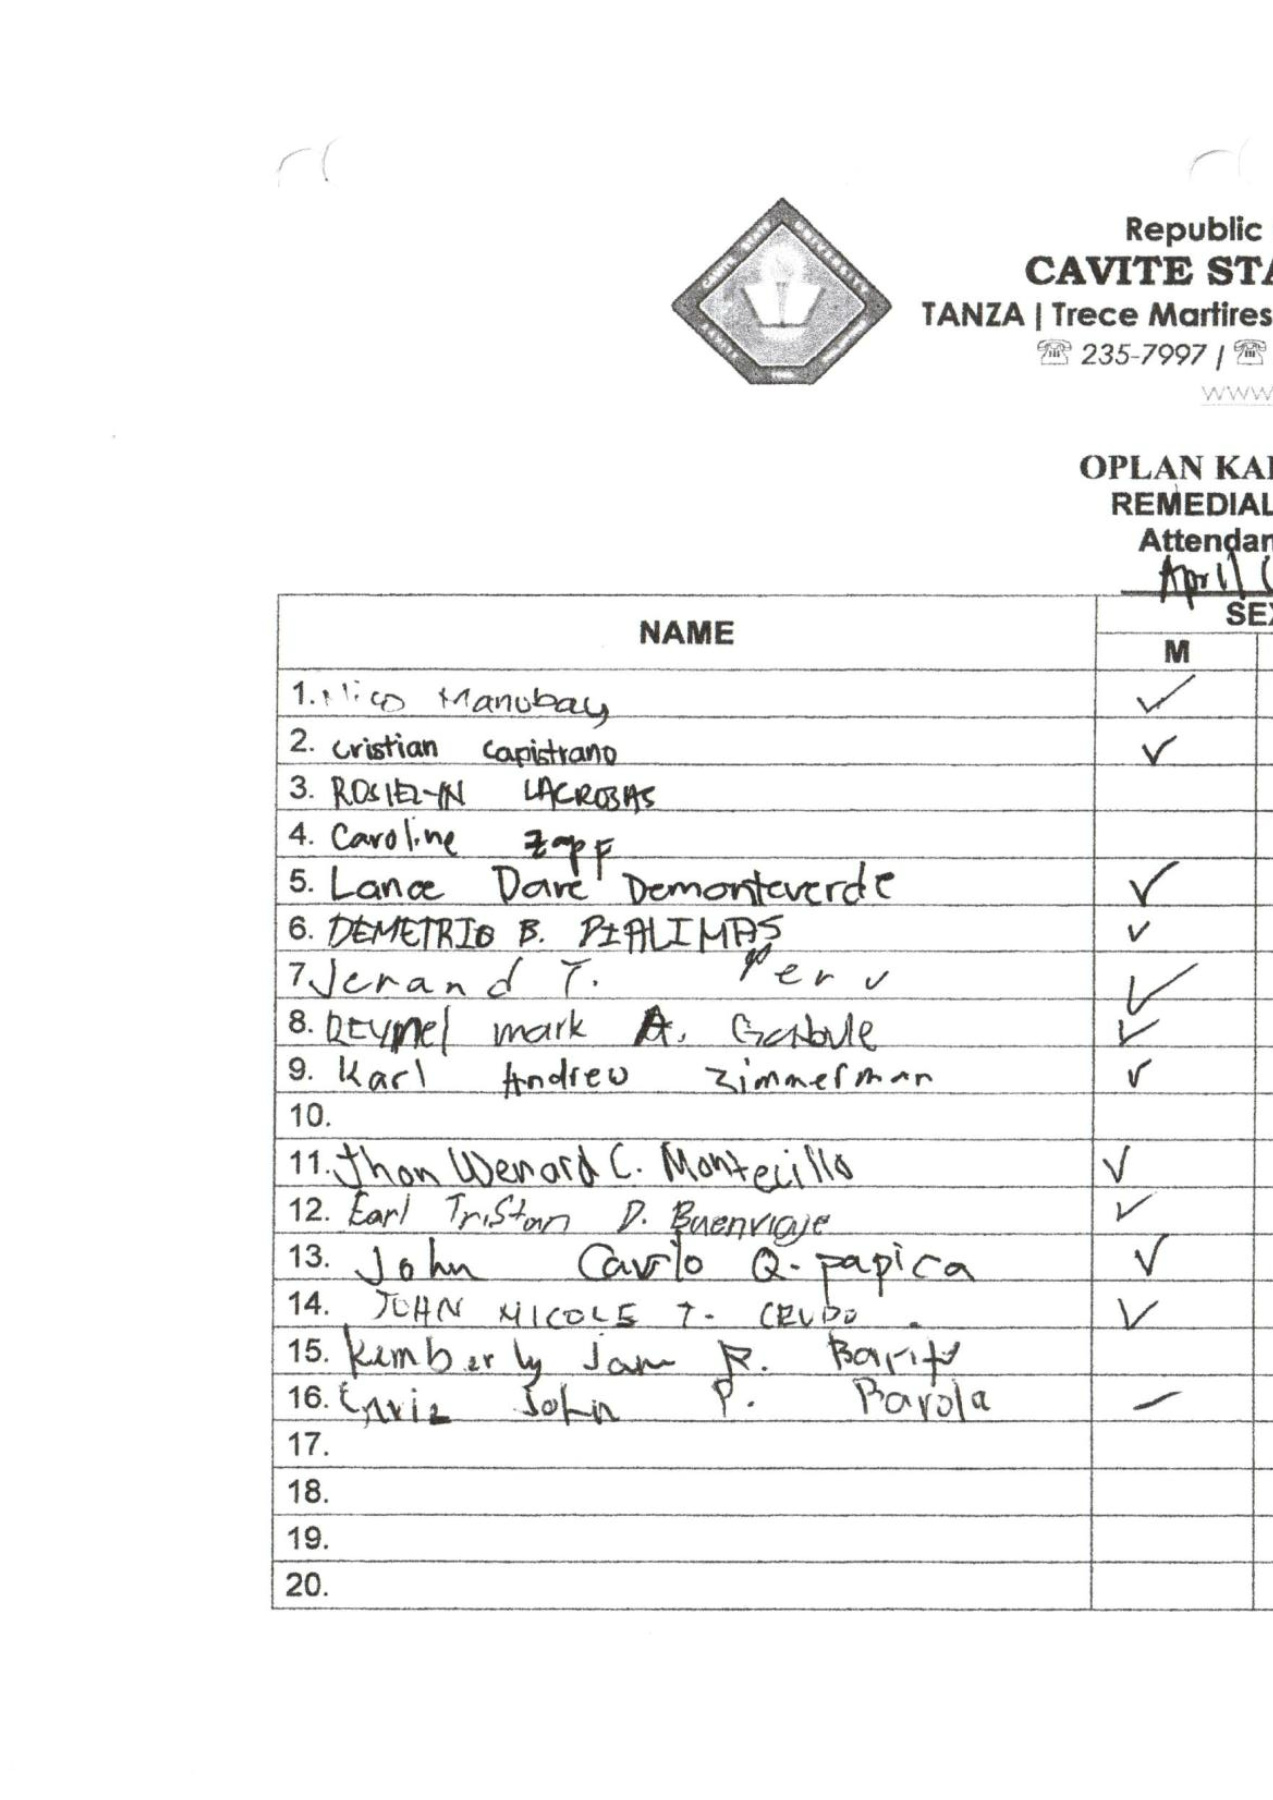 CAVITE STATE UNIVERSITY
Republic
CAVITE STA
TANZA | Trece Martires
☏ 235-7997 / ☏
www
OPLAN KA
REMEDIAL
Attendan
April
NAME
SEX
M
1. Nico Manubay ✓
2. cristian capistrano ✓
3. LACROBAS
4. Caroline Zapf
5. Lance Dave Demonteverde ✓
6. DEMETRIO B. DIALIMAS ✓
7. Jerand T. ✓
8. REYMEL mark A. Gabule ✓
9. Karl Andrew Zimmerman ✓
10.
11. Jhon Wenard C. Montecillo ✓
12. Earl Tristan D. Buenviaje ✓
13. John Carlo Q. papica ✓
14. JOHN NICOLE T. CRUDO. ✓
15. Kimberly Jane R.
16. John P. Barola
17.
18.
19.
20.